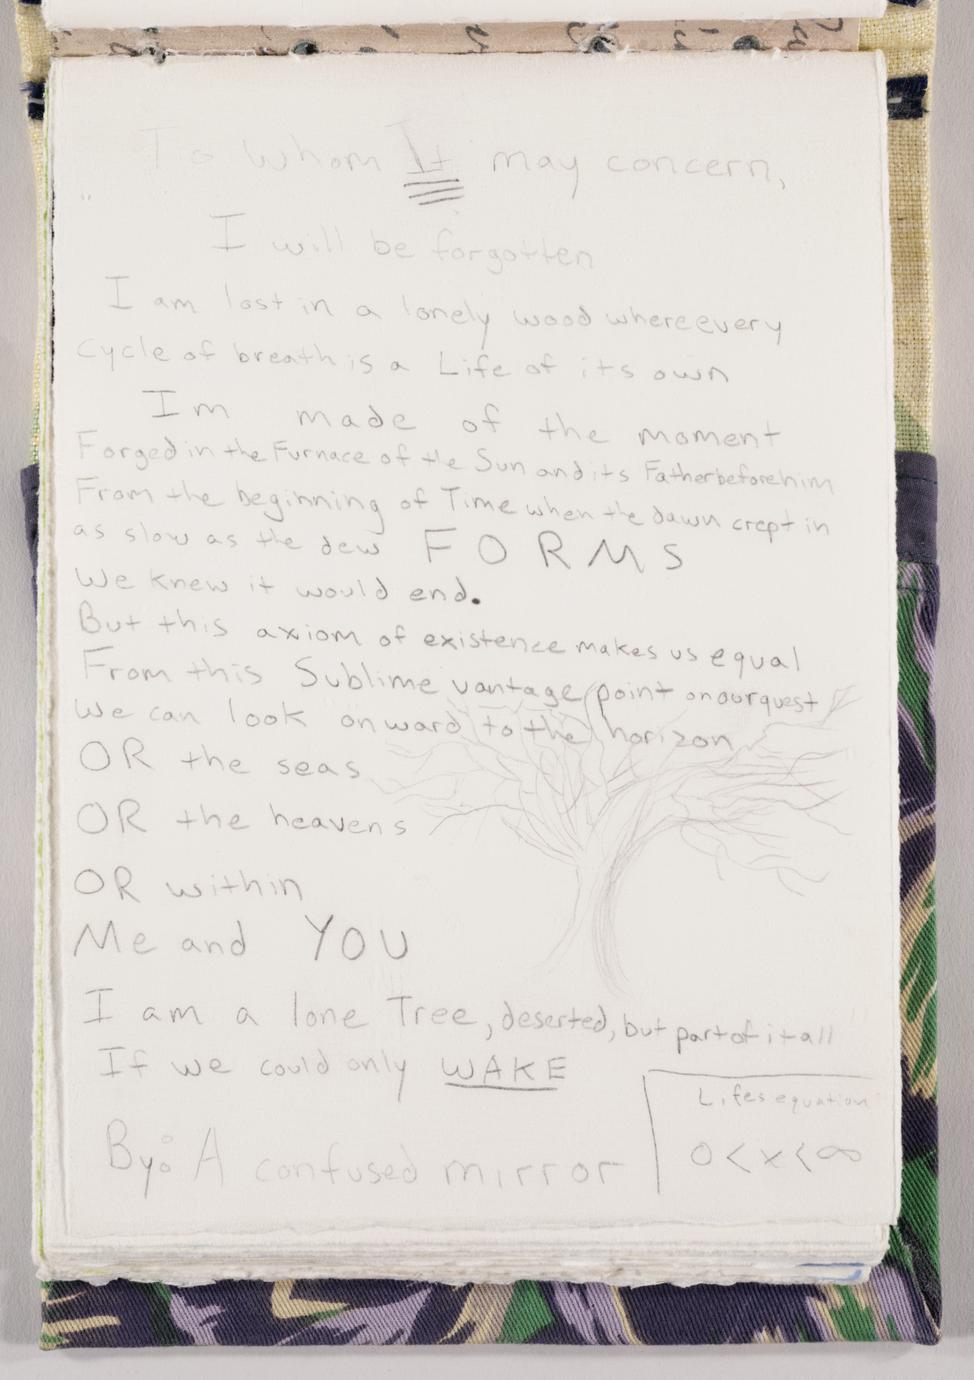 To whom It may concern,
"
I will be forgotten
I am lost in a lonely wood where every
cycle of breath is a Life of its own
Im made of the moment
Forged in the Furnace of the Sun and its Father before him
From the beginning of Time when the dawn crept in
as slow as the dew FORMS
We knew it would end.
But this axiom of existence makes us equal
From this Sublime vantage point on our quest
We can look onward to the horizon
OR the seas
OR the heavens
OR within
Me and YOU
I am a lone Tree, deserted, but part of it all
If we could only WAKE
Lifes equation
0 < x < ∞
By: A confused mirror